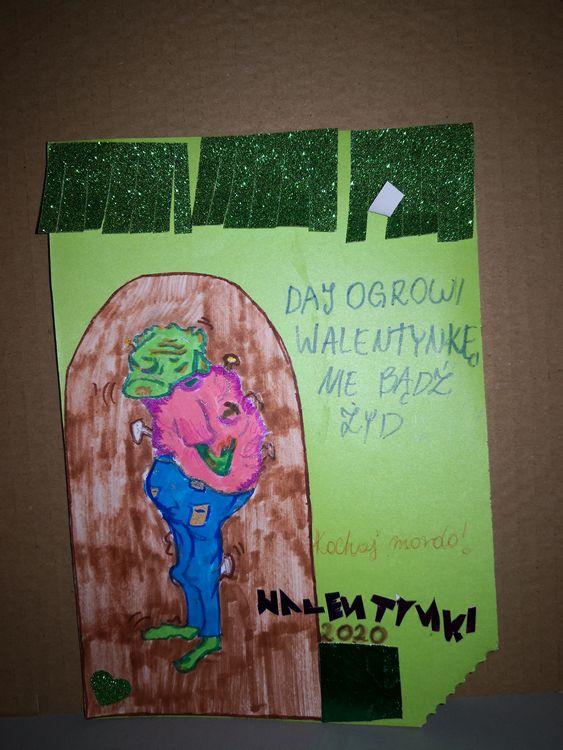 DAJ OGROWI
WALENTYNKĘ
NIE BĄDŹ
ŻYD
Kochaj mordo!
WALENTYNKI
2020